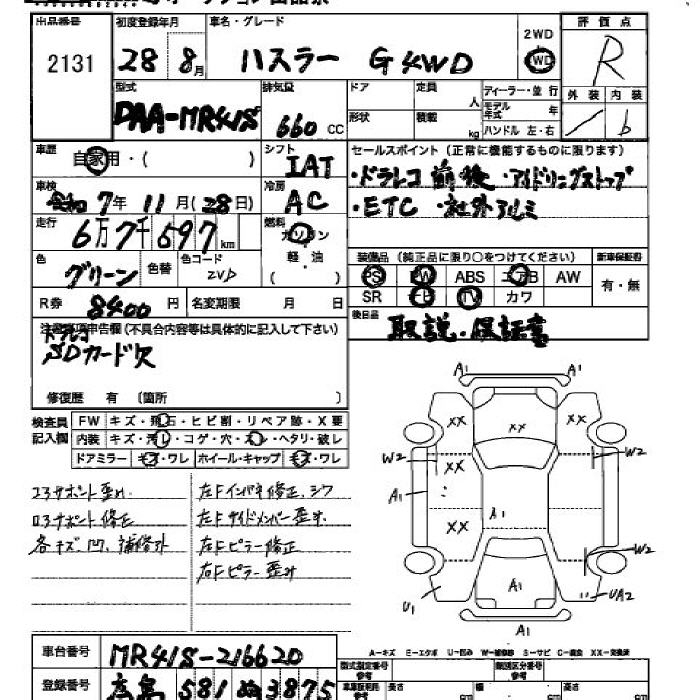 出品番号 初度登録年月 車名・グレード 評価点
2131 28 8月 ハスラー G 4WD 2WD 4WD R
型式 排気量 ドア 定員 人 ディーラー・並行 外装 内装
DAA-MR41S 660 CC 形状 積載 kg モデル年式 年 ハンドル 左・右 / b
車歴 自家用・( ) シフト IAT セールスポイント(正常に機能するものに限ります)
車検 令和7年11月(28日) 冷房 AC ・ドラレコ前後 ・アイドリングストップ
・ETC ・社外アルミ
走行 6万7千697km 燃料 ガソリン
軽・油
( )
色 グリーン 色替 色コード ZVD 装備品(純正品に限り○をつけてください) 新車保証書
PS PW ABS エアB AW 有・無
SR ナビ TV カワ
R券 8400円 名変期限 月 日 後日品 取説・保証書
注意事項申告欄(不具合内容等は具体的に記入して下さい)
ドラレコ
SDカード欠
修復歴 有 〔箇所 〕
検査員記入欄 FW キズ・飛石・ヒビ割・リペア跡・X要
内装 キズ・汚レ・コゲ・穴・スレ・ヘタリ・破レ
ドアミラー キズ・ワレ ホイール・キャップ キズ・ワレ
コアサポート歪み 左Fインパネ修正、シワ
ロアサポート修正 左Fサイドメンバー歪み
各キズ、凹、補修跡 左Fピラー修正
右Fピラー歪み
A1 A1
XX XX XX
W2 XX W2
A1 A1
XX
W2
U1 A1 UA2
A1
A-キズ E-エクボ U-凹み W-補修跡 S-サビ C-腐食 XX-交換済
車台番号 MR41S-216620 型式指定番号 参考 類別区分番号 参考
登録番号 広島 581 ぬ 3875 車車証明用 参考 長さ cm 幅 cm 高さ cm